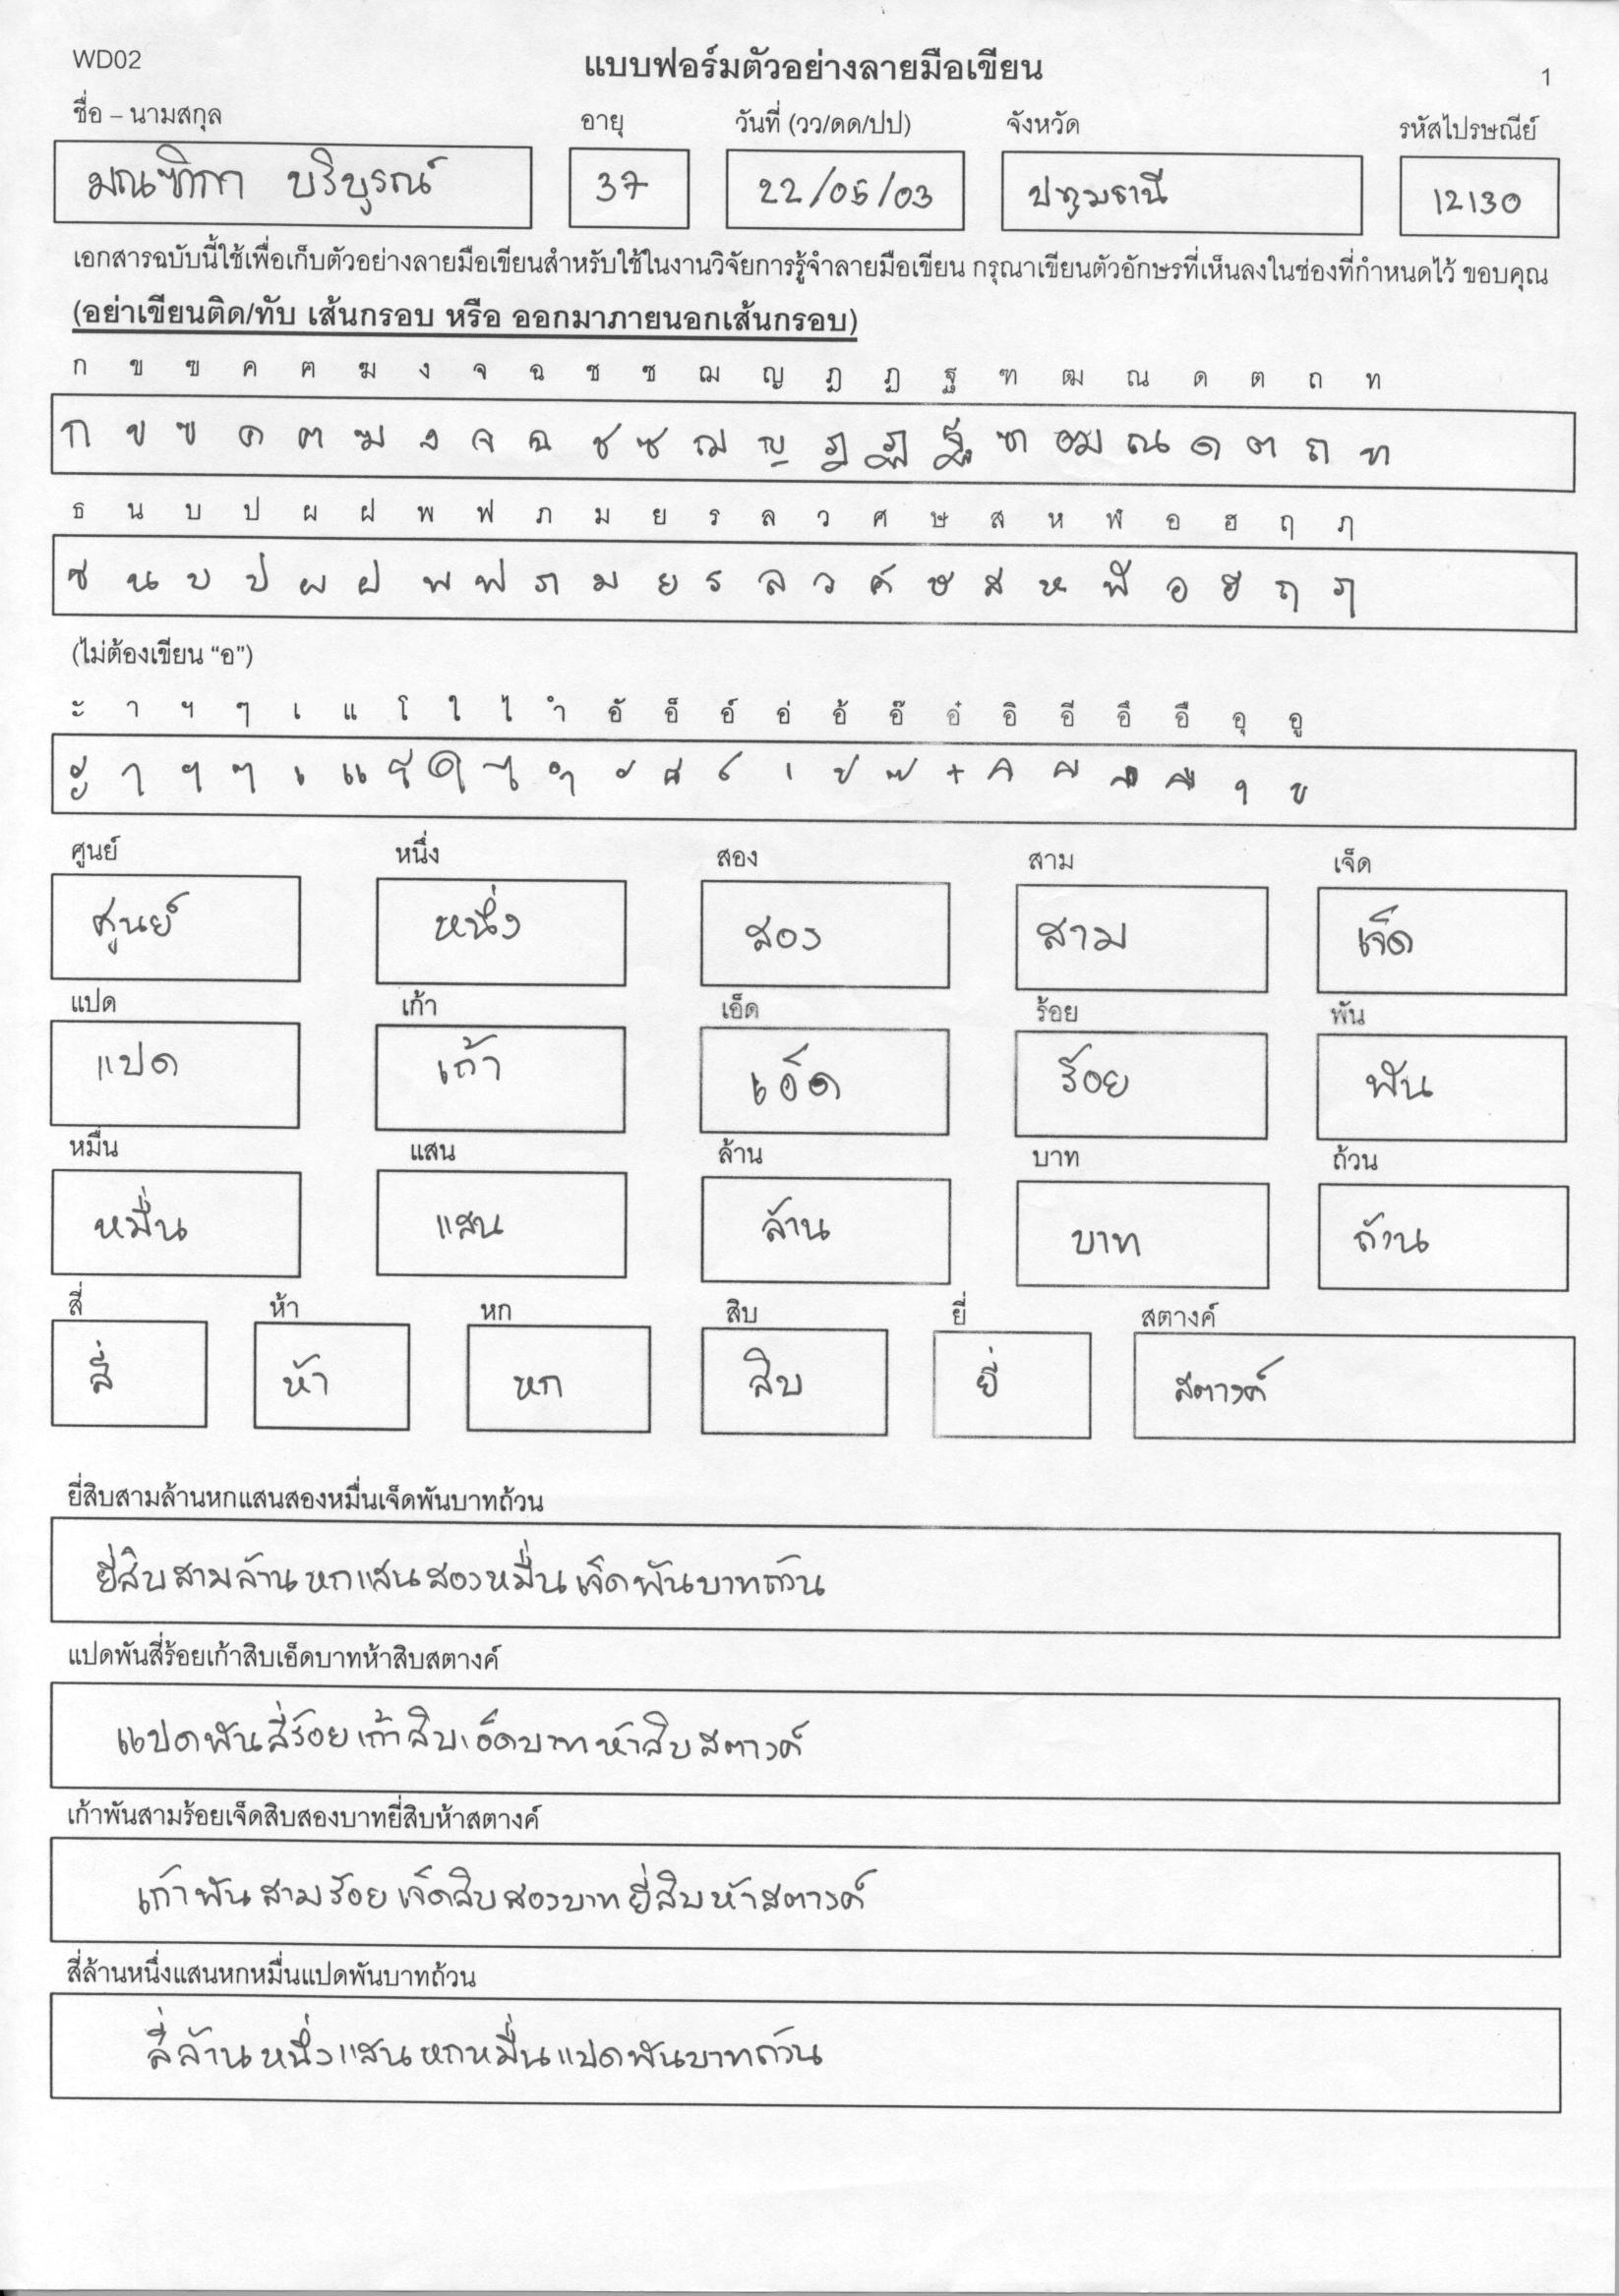 WD02
แบบฟอร์มตัวอย่างลายมือเขียน
1
ชื่อ – นามสกุล อายุ วันที่ (วว/ดด/ปป) จังหวัด รหัสไปรษณีย์
มณฑิกา บริบูรณ์ 37 22/05/03 ปทุมธานี 12130
เอกสารฉบับนี้ใช้เพื่อเก็บตัวอย่างลายมือเขียนสำหรับใช้ในงานวิจัยการรู้จำลายมือเขียน กรุณาเขียนตัวอักษรที่เห็นลงในช่องที่กำหนดไว้ ขอบคุณ
(อย่าเขียนติด/ทับ เส้นกรอบ หรือ ออกมาภายนอกเส้นกรอบ)
ก ข ฃ ค ฅ ฆ ง จ ฉ ช ซ ฌ ญ ฎ ฏ ฐ ฑ ฒ ณ ด ต ถ ท
ก ข ฃ ค ฅ ฆ ง จ ฉ ช ซ ฌ ญ ฎ ฏ ฐ ฑ ฒ ณ ด ต ถ ท
ธ น บ ป ผ ฝ พ ฟ ภ ม ย ร ล ว ศ ษ ส ห ฬ อ ฮ ฤ ฦ
ธ น บ ป ผ ฝ พ ฟ ภ ม ย ร ล ว ศ ษ ส ห ฬ อ ฮ ฤ ฦ
(ไม่ต้องเขียน “อ”)
ะ า ฯ ๆ เ แ โ ใ ไ ำ อั อ็ อ์ อ่ อ้ อ๊ อ๋ อิ อี อึ อื อุ อู
ะ า ฯ ๆ เ แ โ ใ ไ ำ ั ็ ์ ่ ้ ๊ ๋ ิ ี ึ ื ุ ู
ศูนย์ หนึ่ง สอง สาม เจ็ด
ศูนย์ หนึ่ง สอง สาม เจ็ด
แปด เก้า เอ็ด ร้อย พัน
แปด เก้า เอ็ด ร้อย พัน
หมื่น แสน ล้าน บาท ถ้วน
หมื่น แสน ล้าน บาท ถ้วน
สี่ ห้า หก สิบ ยี่ สตางค์
สี่ ห้า หก สิบ ยี่ สตางค์
ยี่สิบสามล้านหกแสนสองหมื่นเจ็ดพันบาทถ้วน
ยี่สิบสามล้านหกแสนสองหมื่นเจ็ดพันบาทถ้วน
แปดพันสี่ร้อยเก้าสิบเอ็ดบาทห้าสิบสตางค์
แปดพันสี่ร้อยเก้าสิบเอ็ดบาทห้าสิบสตางค์
เก้าพันสามร้อยเจ็ดสิบสองบาทยี่สิบห้าสตางค์
เก้าพันสามร้อยเจ็ดสิบสองบาทยี่สิบห้าสตางค์
สี่ล้านหนึ่งแสนหกหมื่นแปดพันบาทถ้วน
สี่ล้านหนึ่งแสนหกหมื่นแปดพันบาทถ้วน